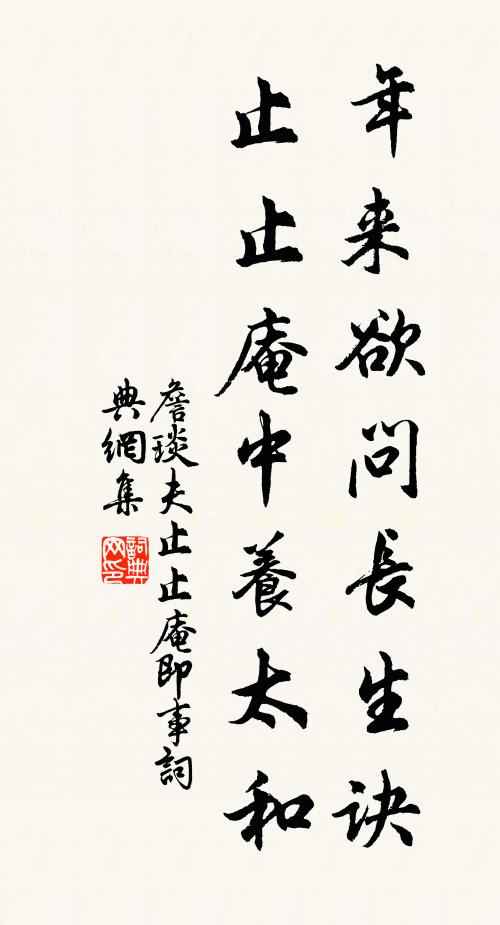 年来欲問長生訣
止止庵中養太和
詹琰夫止止庵即事詞
典網集
詞典
网印